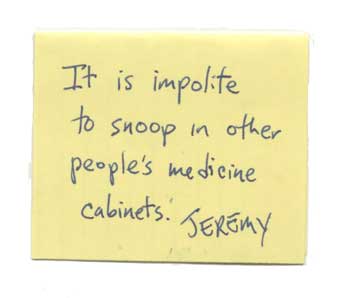 It is impolite
to snoop in other
people's medicine
cabinets. JEREMY